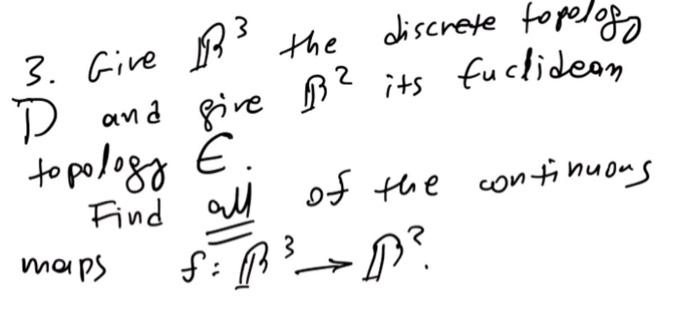 3. Give ℝ³ the discrete topology
D and give ℝ² its Euclidean
topology E.
Find all of the continuous
maps f: ℝ³ → ℝ².